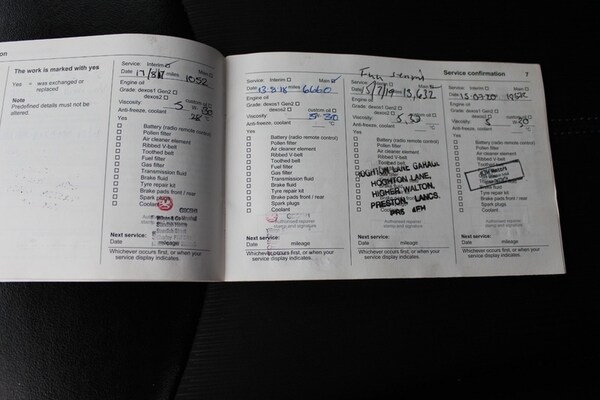 The work is marked with yes
Yes = was exchanged or replaced
Note
Predefined details must not be altered.
Service: Interim Main
Date 17/8/17 miles 1052
Engine oil
Grade: dexos1 Gen2
dexos2 custom oil
Viscosity: 5 W 30
Anti-freeze, coolant
Yes
Battery (radio remote control)
Pollen filter
Air cleaner element
Ribbed V-belt
Toothed belt
Fuel filter
Gas filter
Transmission fluid
Brake fluid
Tyre repair kit
Brake pads front / rear
Spark plugs
Coolant
Next service:
Date mileage
Whichever occurs first, or when your service display indicates.
Service: Interim Main
Date 13.8.18 miles 6660
Engine oil
Grade: dexos1 Gen2
dexos2 custom oil
Viscosity: 5W 30
Anti-freeze, coolant °C
Yes
Battery (radio remote control)
Pollen filter
Air cleaner element
Ribbed V-belt
Toothed belt
Fuel filter
Gas filter
Transmission fluid
Brake fluid
Tyre repair kit
Brake pads front / rear
Spark plugs
Coolant
Authorised repairer stamp and signature
Next service:
Date mileage
Whichever occurs first, or when your service display indicates.
Full Service
15/7/19 miles 13,632
Engine oil
Grade: dexos1 Gen2
dexos2 custom oil
Viscosity: 5 W 30
Anti-freeze, coolant °C
Yes
Battery (radio remote control)
Pollen filter
Air cleaner element
Ribbed V-belt
HOGHTON LANE GARAGE
HOGHTON LANE,
HIGHER WALTON,
PRESTON, LANCS.
PR5 4FH
Authorised repairer stamp and signature
Next service:
Date mileage
Whichever occurs first, or when your service display indicates.
Service confirmation 7
Service: Interim Main
Date 15.07.20 miles
Engine oil
Grade: dexos1 Gen2
dexos2 custom oil
Viscosity: 5 W 30
Anti-freeze, coolant °C
Yes
Battery (radio remote control)
Pollen filter
Air cleaner element
Ribbed V-belt
Toothed belt
Brake fluid
Tyre repair kit
Brake pads front / rear
Spark plugs
Coolant
Authorised repairer stamp and signature
Next service:
Date mileage
Whichever occurs first, or when your service display indicates.